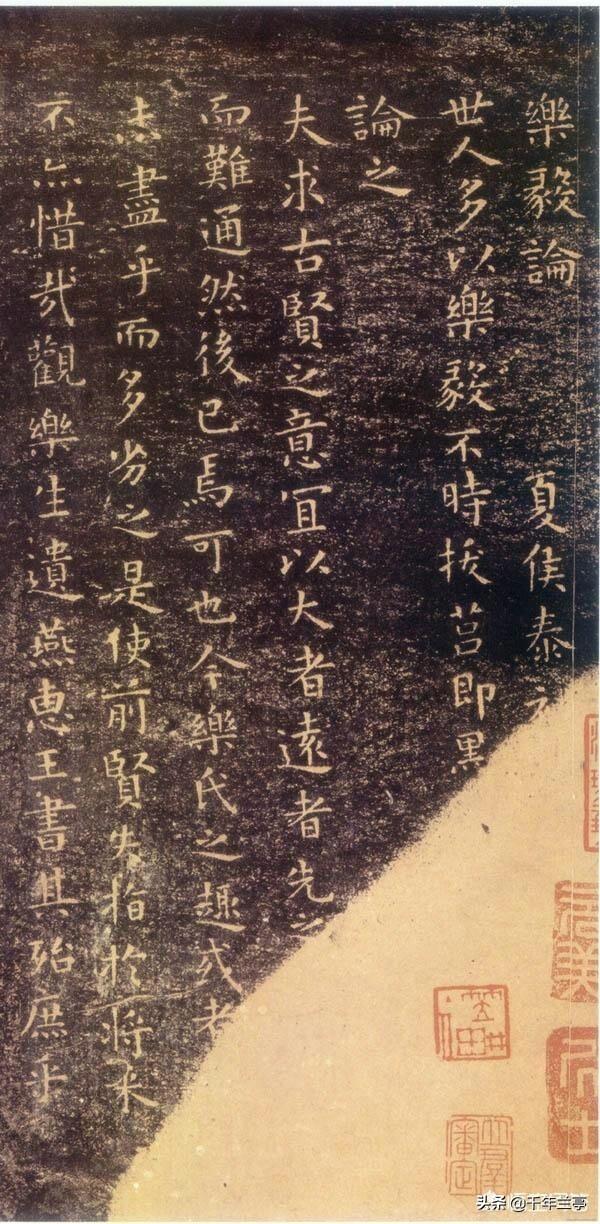 樂毅論 夏侯泰
世人多以樂毅不時拔莒即墨
論之
夫求古賢之意宜以大者遠者先之
而難通然後已焉可也今樂氏之趣或者
未盡乎而多劣之是使前賢失指於將来
不亦惜哉觀樂生遺燕惠王書其殆庶乎
头条 @千年兰亭